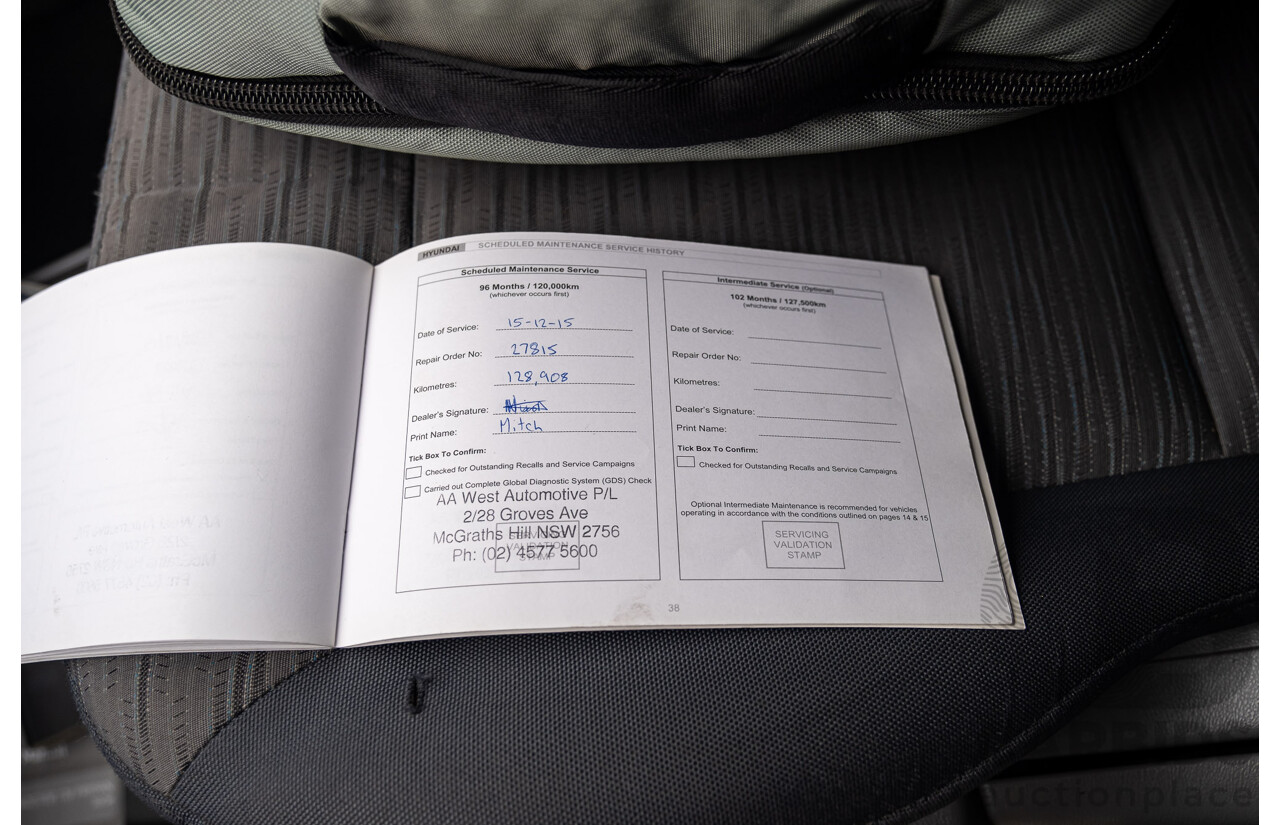 HYUNDAI SCHEDULED MAINTENANCE SERVICE HISTORY
Scheduled Maintenance Service
96 Months / 120,000km
(whichever occurs first)
Date of Service: 15-12-15
Repair Order No: 27815
Kilometres: 128,908
Dealer's Signature:
Print Name: Mitch
Tick Box To Confirm:
Checked for Outstanding Recalls and Service Campaigns
Carried out Complete Global Diagnostic System (GDS) Check
AA West Automotive P/L
2/28 Groves Ave
McGraths Hill NSW 2756
Ph: (02) 4577 5600
SERVICING
VALIDATION
STAMP
Intermediate Service (Optional)
102 Months / 127,500km
(whichever occurs first)
Date of Service:
Repair Order No:
Kilometres:
Dealer's Signature:
Print Name:
Tick Box To Confirm:
Checked for Outstanding Recalls and Service Campaigns
Optional Intermediate Maintenance is recommended for vehicles
operating in accordance with the conditions outlined on pages 14 & 15
SERVICING
VALIDATION
STAMP
38